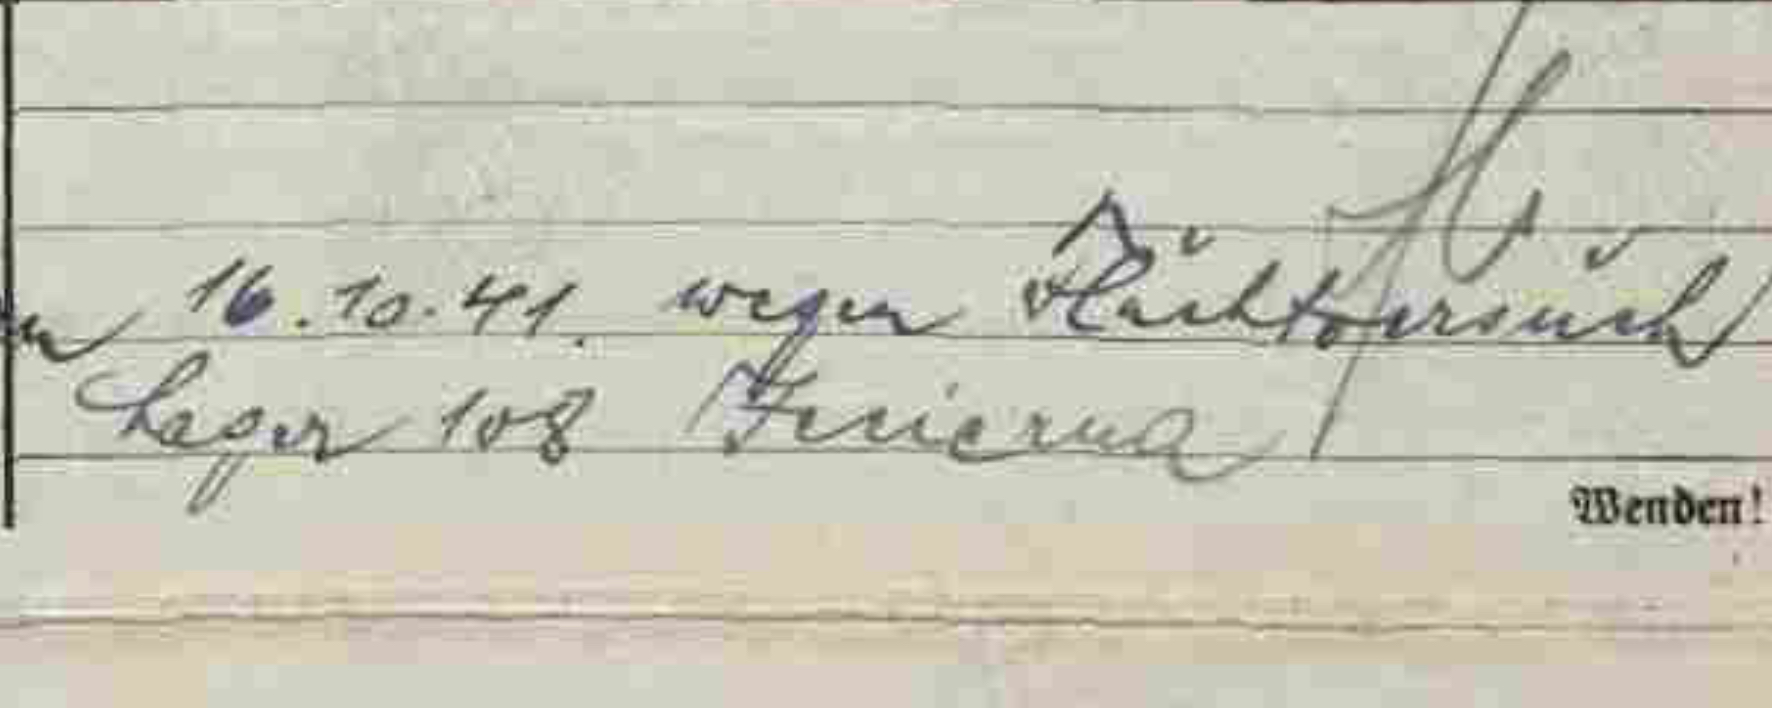 16.10.41. wegen Fluchtversuch
Lager 108
Wenden!